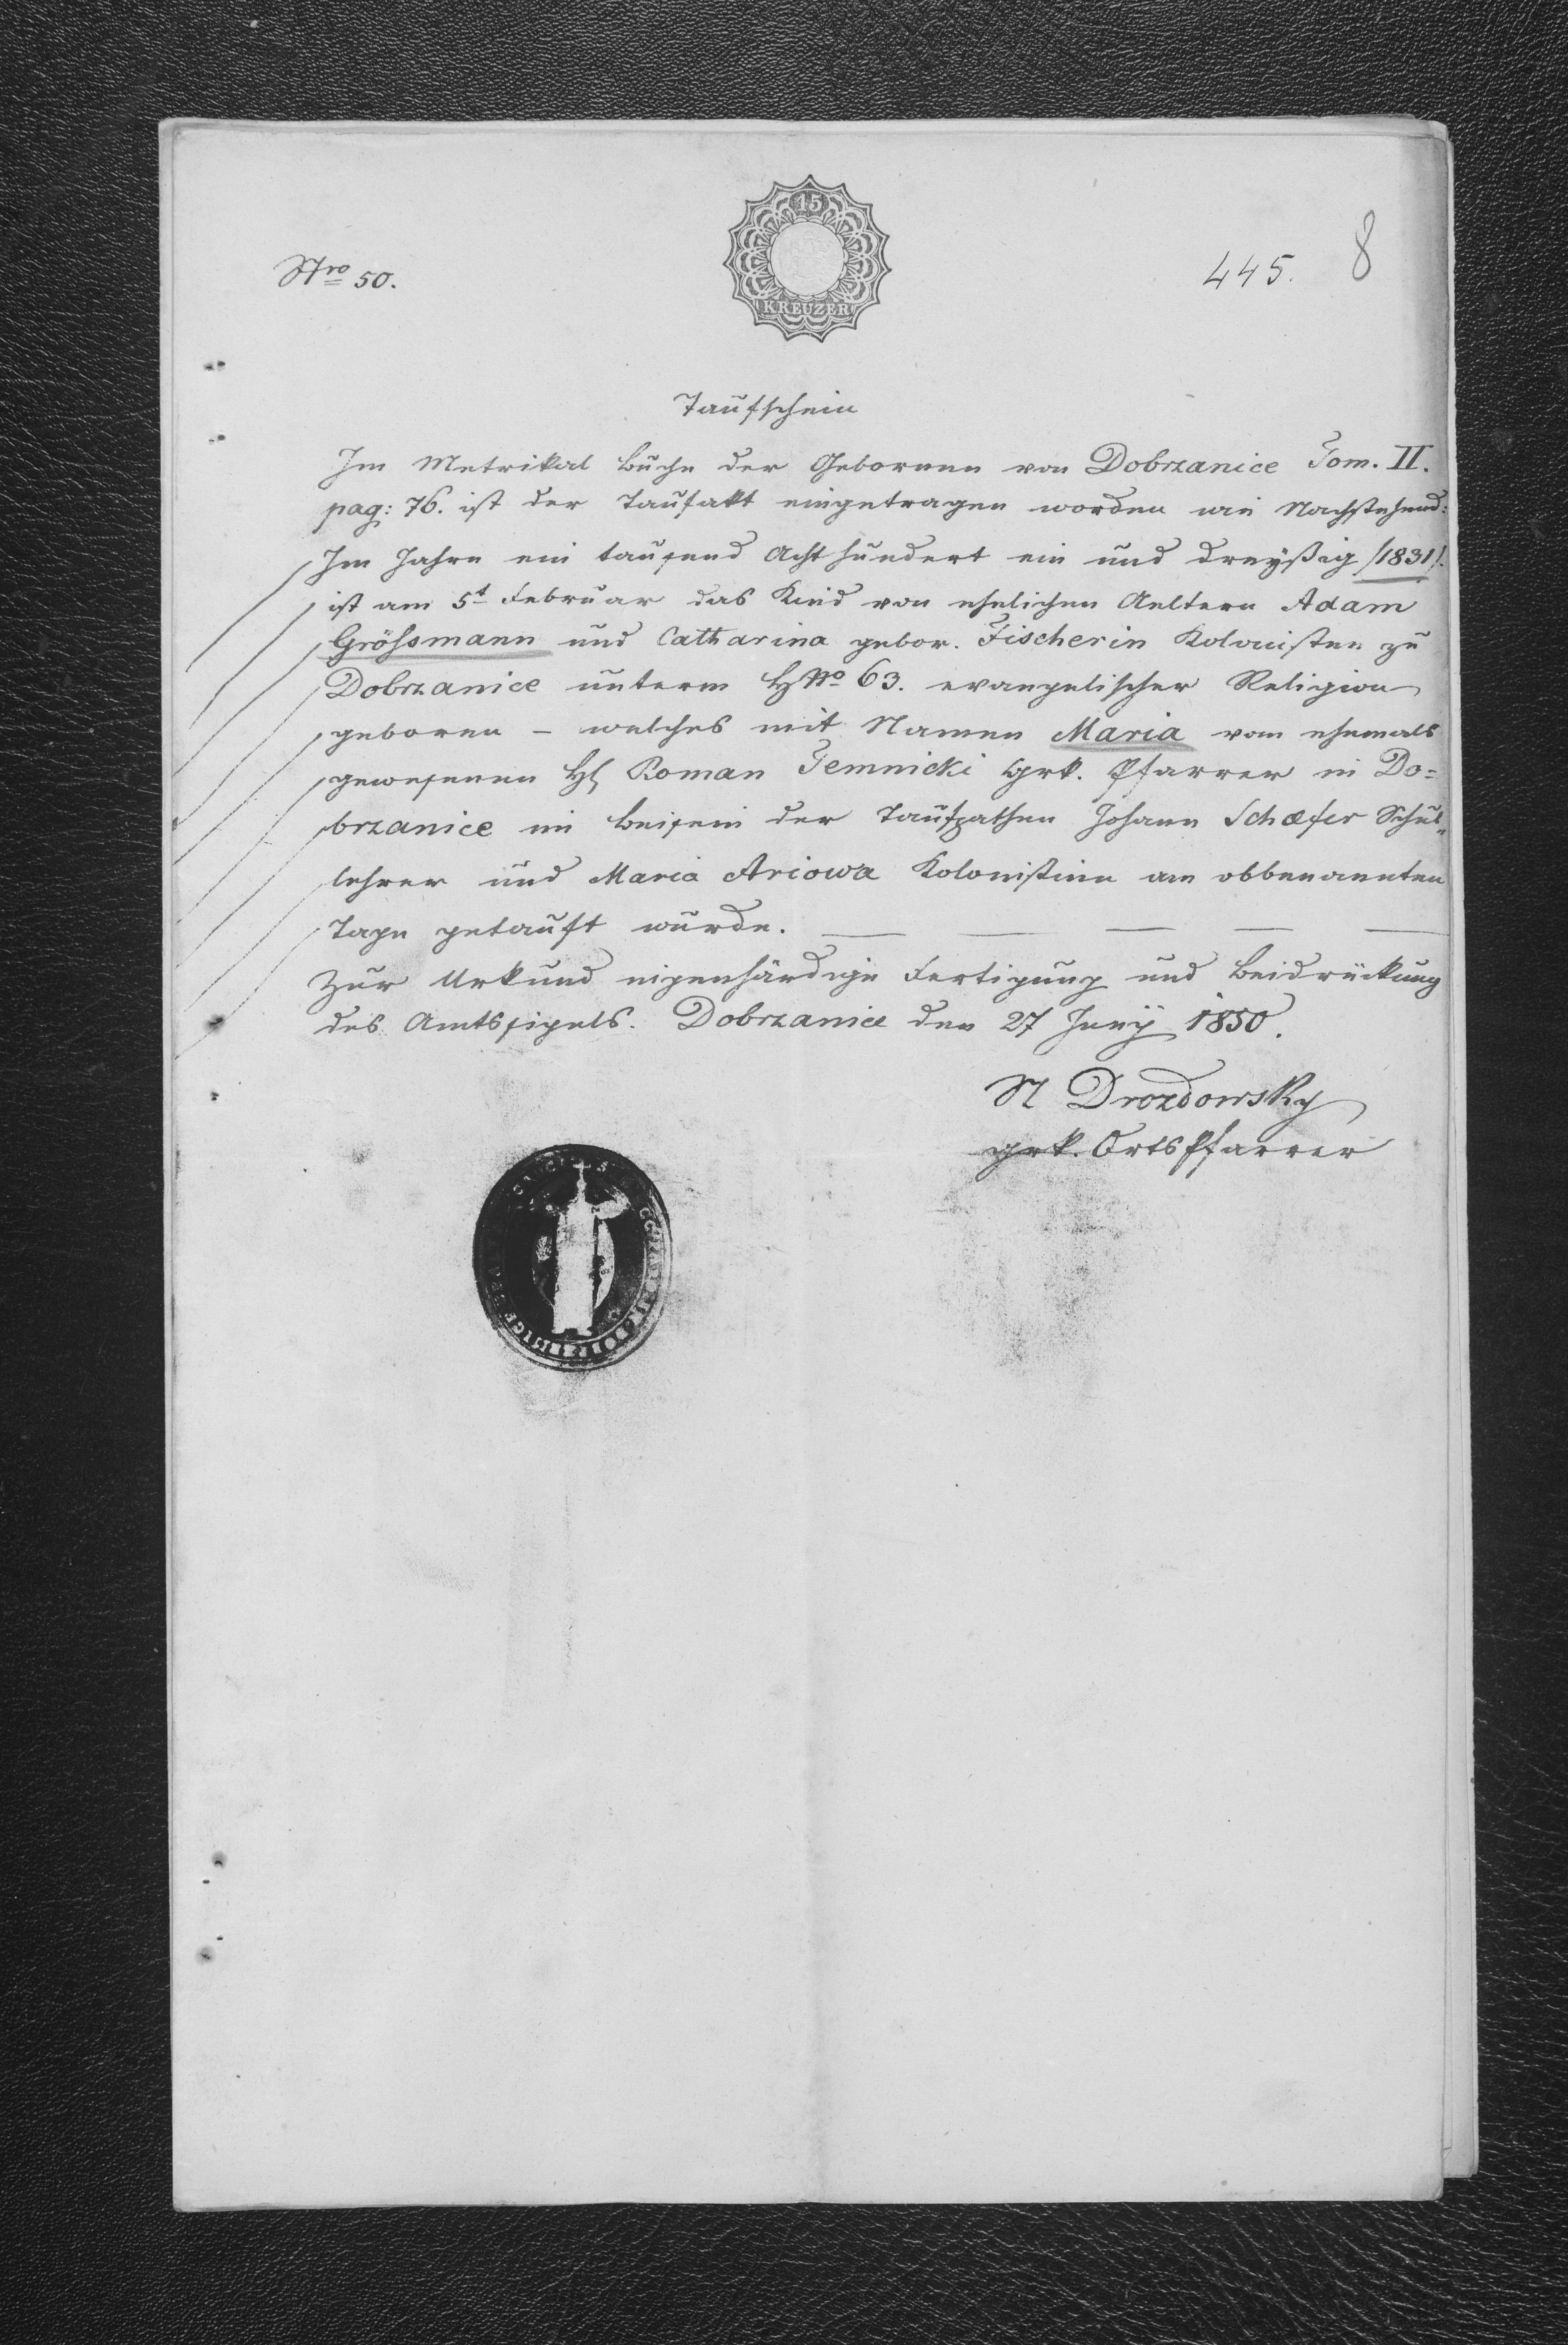 15
KREUZER
Nro 50.
445. 8
Taufschein
Im Metrikal Buche der Gebornen von Dobrzanice Tom. II.
pag: 76. ist der Taufakt eingetragen worden wie Nachstehend:
Im Jahre ein tausend Acht hundert ein und dreyßig /1831/.
ist am 5t Februar das Kind von ehelichen Aeltern Adam
Grössmann und Catharina gebor. Fischerin Kolonisten zu
Dobrzanice unterm HNo 63. evangelischer Religion
geboren – welches mit Namen Maria vom ehemals
gewesenen H Roman Temnicki grk. Pfarrer in Do=
brzanice im Beisein der Taufpathen Johann Schæfer Schul„
lehrer und Maria Ariowa Kolonistinn am obbenannten
Tage getauft wurde. — — — — —
Zur Urkund eigenhändige Fertigung und Beidrückung
des Amtssigels. Dobrzanice den 27 Juny 1850.
N Drozdowsky
grk. Orts Pfarrer